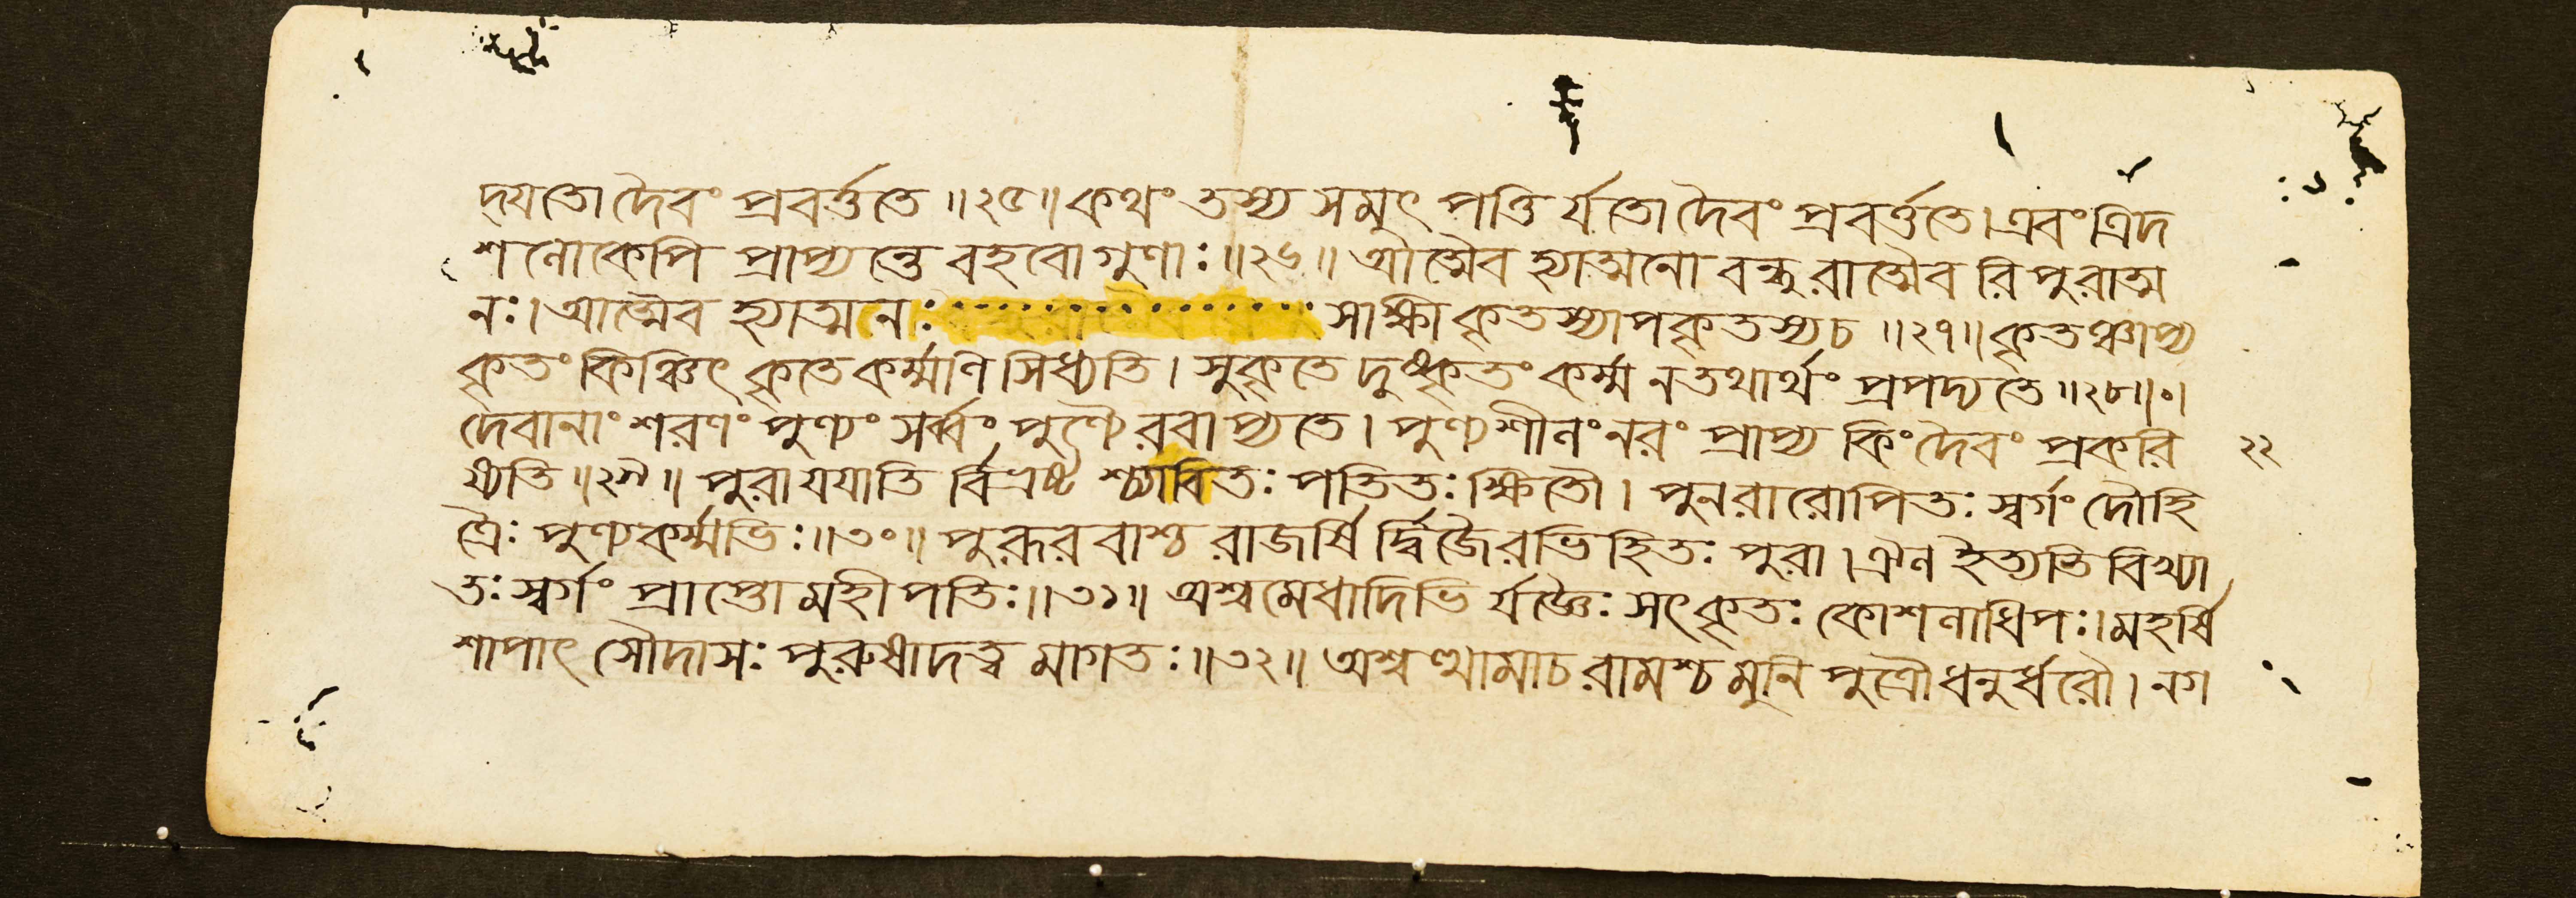 দযতো দৈবং প্রবর্ত্ততে ॥২৫॥ কথং তস্য সমুৎ পত্তি র্যতো দৈবং প্রবর্ত্ততে। এবং ত্রিদ
শলোকেপি প্রাপ্যন্তে বহবো গুণাঃ ॥২৬॥ আত্মৈব হ্যাত্মনো বন্ধুরাত্মৈব রিপুরাত্ম
নঃ। আত্মৈব হ্যাত্মনঃ সাক্ষী কৃতস্যাপকৃতস্যচ ॥২৭॥ কৃতঞ্চাপ্য
কৃতং কিঞ্চিৎ কৃতে কর্ম্মণি সিধ্যতি। সুকৃতে দুষ্কৃতং কর্ম্ম ন তথার্থং প্রপদ্যতে ॥২৮॥০।
দেবানাং শরণং পুণ্যং সর্ব্বং পুণ্যৈরবাপ্যতে। পুণ্যশীলং নরং প্রাপ্য কিং দৈবং প্রকরি
২২
ষ্যতি ॥২৯॥ পুরা যযাতি র্বিভ্রষ্ট শ্চ্যাবিতঃ পতিতঃ ক্ষিতৌ। পুনরারোপিতঃ স্বর্গং দৌহি
ত্রৈঃ পুণ্যকর্ম্মভিঃ ॥৩০॥ পুরূরবাশ্চ রাজর্ষি র্দ্বিজৈরভিহিতঃ পুরা। ঐল ইত্যতি বিখ্যা
তঃ স্বর্গং প্রাপ্তো মহীপতিঃ ॥৩১॥ অশ্বমেধাদিভি র্যজ্ঞৈঃ সৎকৃতঃ কোশলাধিপঃ। মহর্ষি
শাপাৎ সৌদাসঃ পুরুষাদত্ব মাগতঃ ॥৩২॥ অশ্বত্থামাচ রামশ্চ মুনি পুত্রৌ ধনুর্ধরৌ। নগ